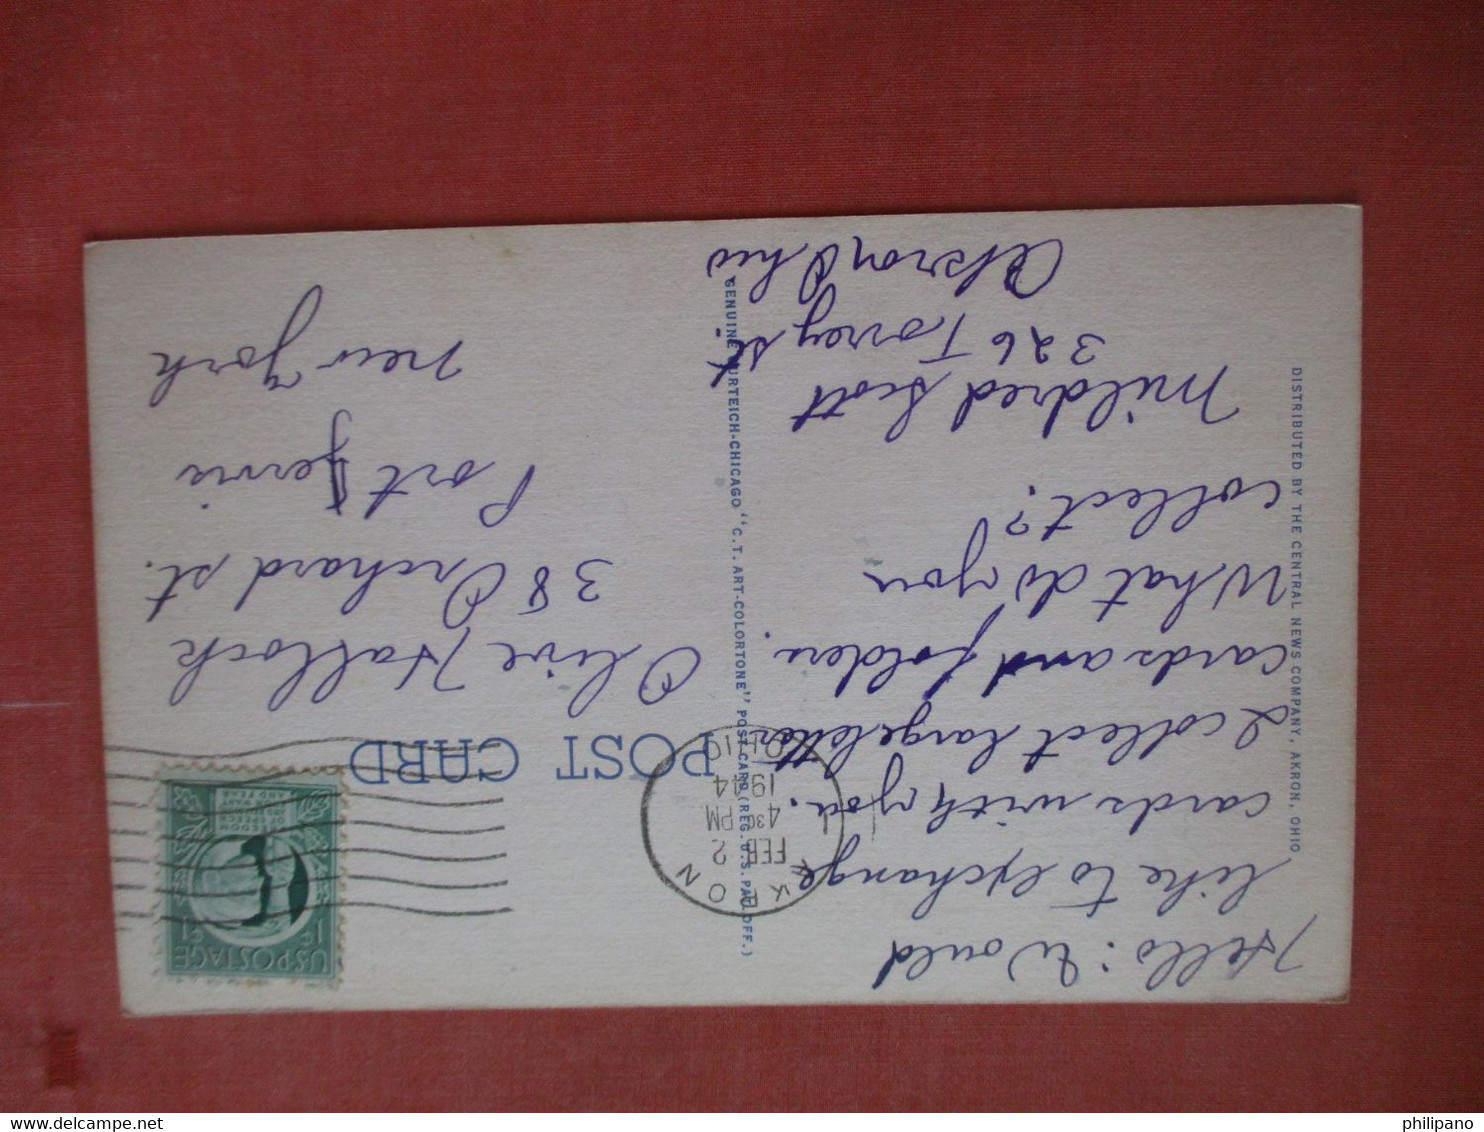 Hello: Would
like to exchange
cards with you.
I collect large letter
cards and folders.
What do you
collect?
Mildred Scott
326 Torrey st.
Akron Ohio
DISTRIBUTED BY THE CENTRAL NEWS COMPANY, AKRON, OHIO
GENUINE CURTEICH-CHICAGO "C.T. ART-COLORTONE" POST CARD (REG. U.S. PAT. OFF.)
POST CARD
AKRON
FEB 2
4 30 PM
1944
OHIO
U.S. POSTAGE
1¢ 1¢
FREEDOM
OF SPEECH
AND RELIGION
FROM WANT
AND FEAR
Olive Hallock
38 Orchard st.
Port Jervis
New York
philipano